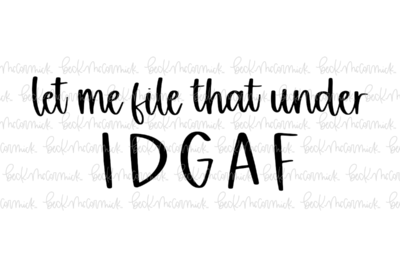 let me file that under
IDGAF